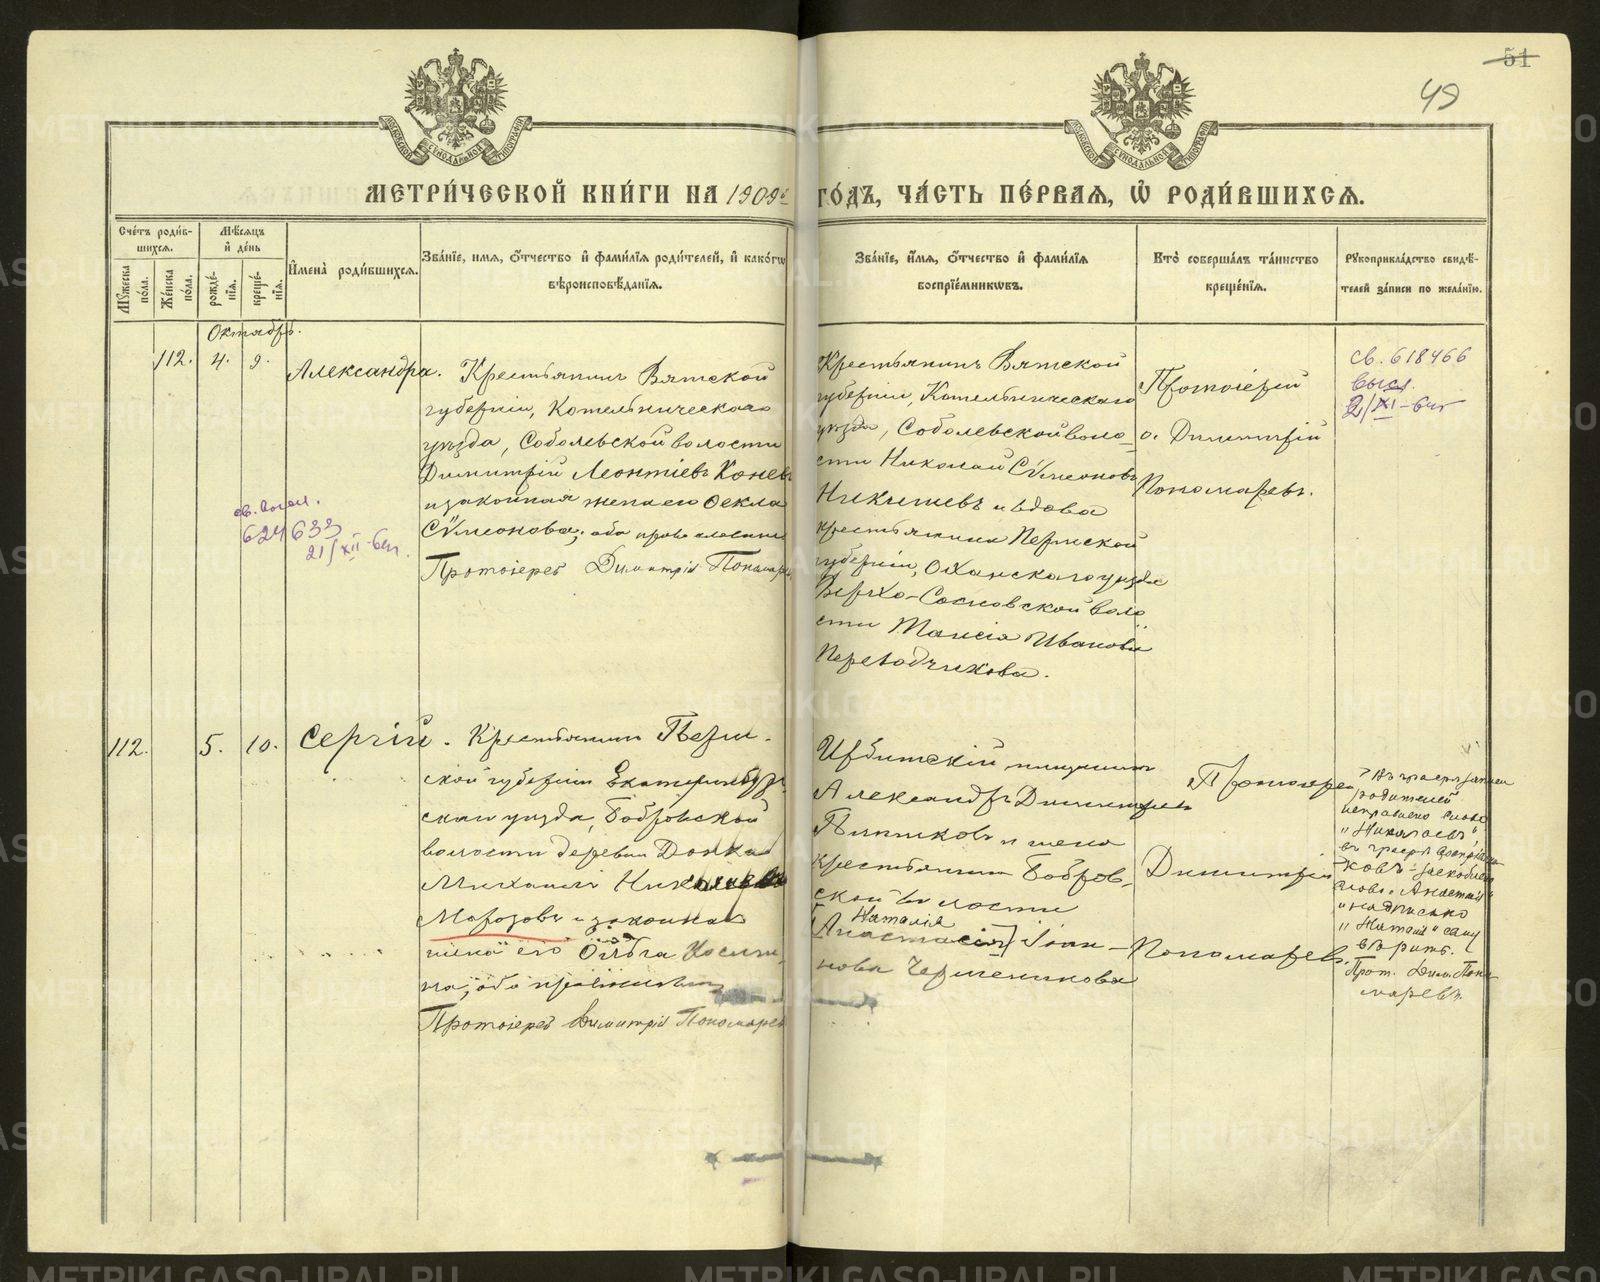 51
49
МОСКОВСКОЙ СѴНОДАЛЬНОЙ ТИПОГРАФІИ
МОСКОВСКОЙ СѴНОДАЛЬНОЙ ТИПОГРАФІИ
МЕТРИ́ЧЕСКОЙ КНИ́ГИ НА 1909й ГО́ДЪ, ЧА́СТЬ ПЕ́РВАѦ, Ѡ҆ РОДИ́ВШИХСѦ.
Сче́тъ роди́в-
шихсѧ.
Мѹжеска по́ла.
Же́нска по́ла.
Мѣ́сѧцъ
и҆ де́нь
рожде́-
нїѧ.
креще́-
нїѧ.
И҆мена̀ роди́вшихсѧ.
Зва́нїе, и́мѧ, ѻ҆́тчество и҆ фами́лїѧ роди́телей, и҆ како́гѡ
вѣроисповѣ́данїѧ.
Зва́нїе, и҆́мѧ, ѻ҆́тчество и҆ фами́лїѧ
воспрїе́мникѡвъ.
Кто̀ соверша́лъ та́инство
креще́нїѧ.
Рꙋкоприкла́дство свидѣ́-
телей за́писи по жела́нїю.
Октябрь.
112. 4. 9. Александра.
Крестьянинъ Вятской
губерніи, Котельническаго
уѣзда, Соболевской волости
Димитрій Леонтіевъ Коневъ
и законная жена его Ѳекла
Сѷмеонова; оба православные
Протоіерей Димитрій Пономаревъ
св. высл.
624633
21/XII-64г.
Крестьянинъ Вятской
губерніи, Котельническаго
уѣзда, Соболевской воло-
сти Николай Сѷмеоновъ
Никишевъ и вдова
крестьянина Пермской
губерніи, Оханскаго уѣзда
Верхо-Сосновской воло
сти Таисія Иванова
Переводчикова.
Протоіерей
о. Димитрій
Пономаревъ.
св. 618466
высл.
2/XI-64г
112. 5. 10. Сергій.
Крестьянинъ Перм-
ской губерніи Екатеринбург-
скаго уѣзда, Бобровской
волости деревни
Михаилъ Николаевъ
Морозовъ и законная
жена его Ольга
на, оба православные
Протоіерей Димитрій Пономаревъ
Ирбитскій мѣщанинъ
Александръ Димитріевъ
и жена
крестьянина Бобров-
ской волости
Наталія
[Анастасія] Іоан-
нова Черменинова
Протоіерей
Димитрій
Пономаревъ.
Въ графѣ записи
родителей
исправлено слово
"Николаевъ"
въ графѣ воспріемни
ковъ зачеркнуто
слово "Анастасія"
надписано
"Наталія" сему
вѣрить.
Прот. Дим. Поно
маревъ.
METRIKI.GASO-URAL.RU